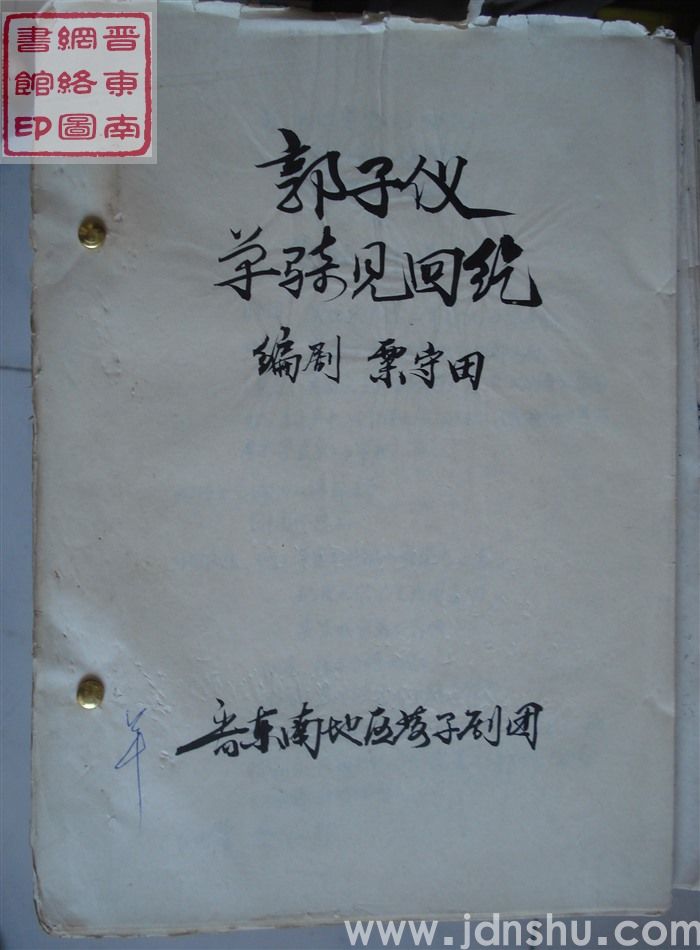 晋东南
網絡圖
書館印
郭子仪
单骑见回纥
编剧 栗守田
晋东南地区落子剧团
www.jdnshu.com